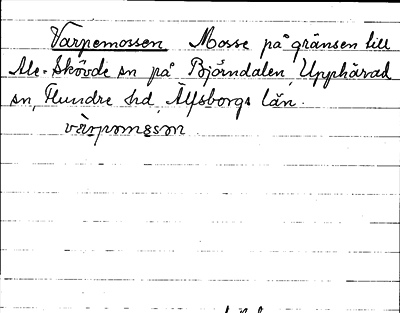 Varpemossen Mosse på gränsen till
Ale-Skövde sn på Björndalen, Upphärad
sn, Flundre hd, Älfsborgs län.
värpomosən